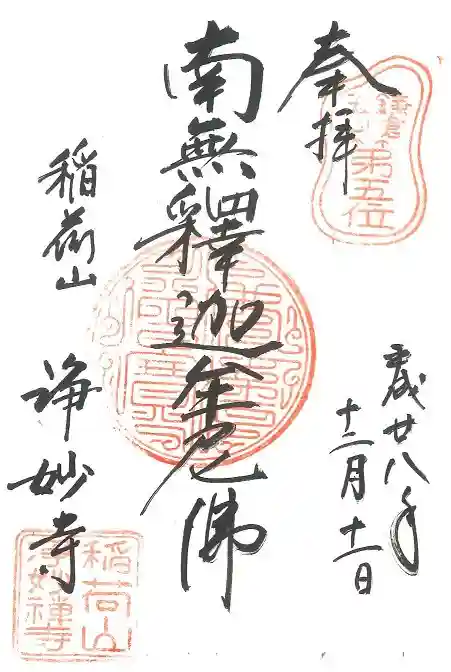 奉拝
鎌倉
五山
第五位
平成廿八年
十二月十一日
南無釋迦牟尼佛
稲荷山
淨妙寺
稲荷山
淨妙禅寺